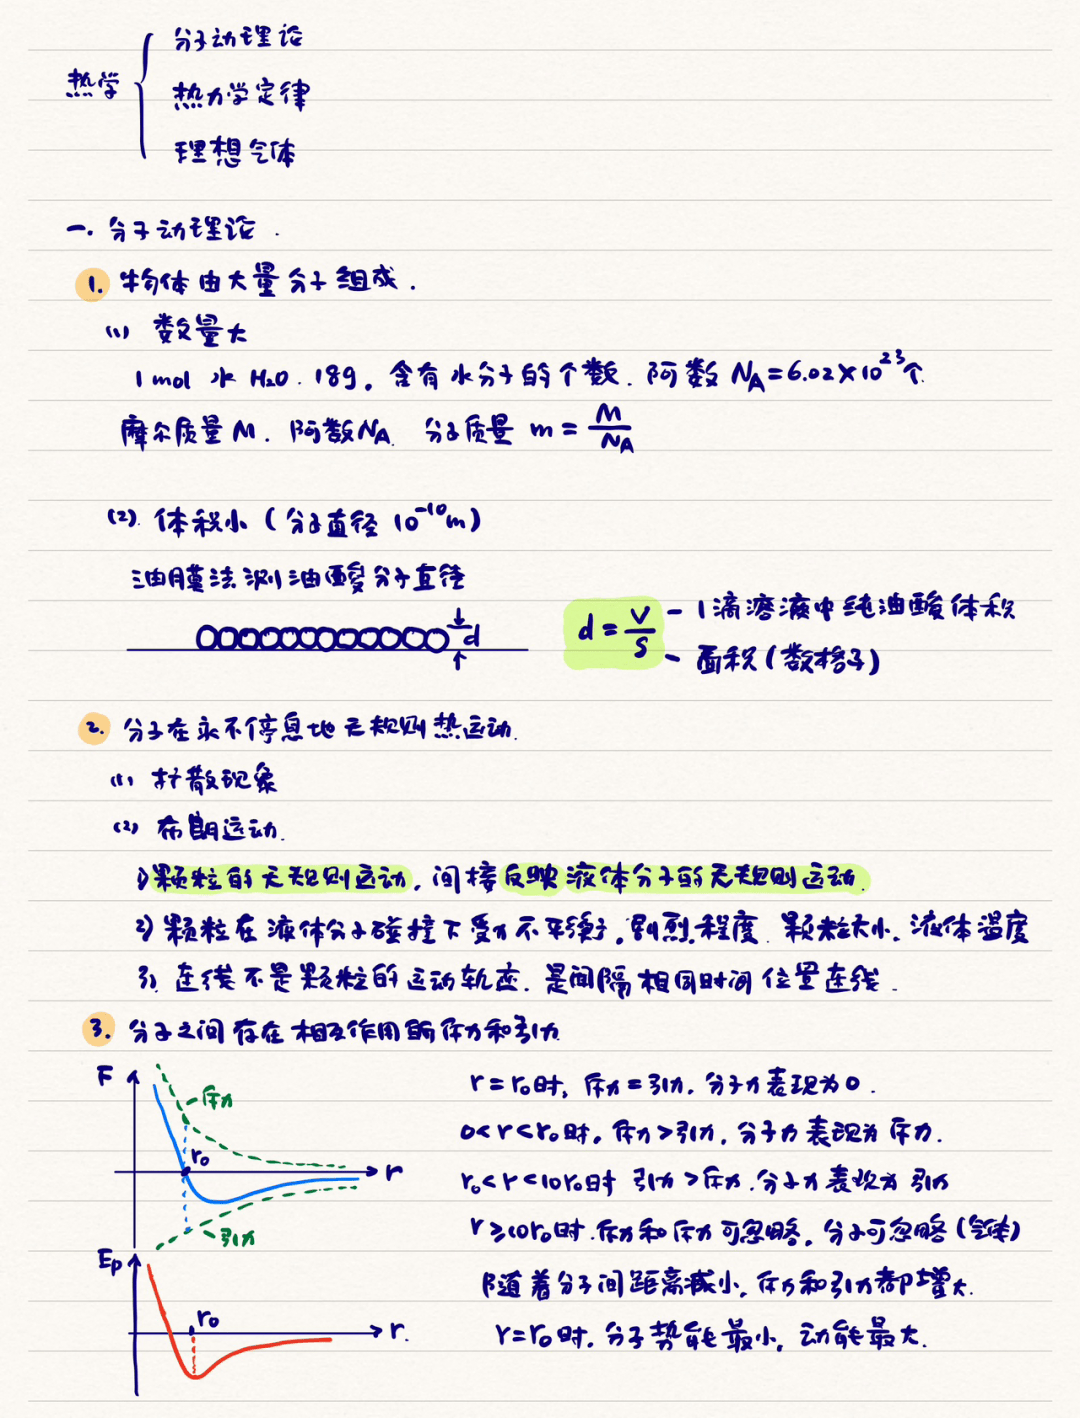 热学
分子动理论
热力学定律
理想气体
一. 分子动理论.
1. 物体由大量分子组成.
(1) 数量大
1mol 水 H₂O. 18g, 含有水分子的个数. 阿数 N_A=6.02×10²³个.
摩尔质量M. 阿数N_A. 分子质量 m = M/N_A
(2). 体积小 (分子直径 10⁻¹⁰m)
油膜法测油酸分子直径
d
d = V/S
- 1滴溶液中纯油酸体积
- 面积(数格子)
2. 分子在永不停息地无规则热运动.
(1) 扩散现象
(2) 布朗运动.
1) 颗粒的无规则运动, 间接反映液体分子的无规则运动.
2) 颗粒在液体分子碰撞下受力不平衡, 剧烈程度. 颗粒大小. 液体温度
3). 连线不是颗粒的运动轨迹. 是间隔相同时间位置连线.
3. 分子之间存在相互作用的斥力和引力
F
斥力
r₀
r
引力
r=r₀时, 斥力=引力, 分子力表现为0.
0<r<r₀时, 斥力>引力, 分子力表现为斥力.
r₀<r<10r₀时 引力>斥力. 分子力表现为引力
r≥10r₀时. 斥力和斥力可忽略, 分子可忽略(气体)
随着分子间距离减小, 斥力和引力都增大.
Ep
r₀
r.
r=r₀时, 分子势能最小, 动能最大.